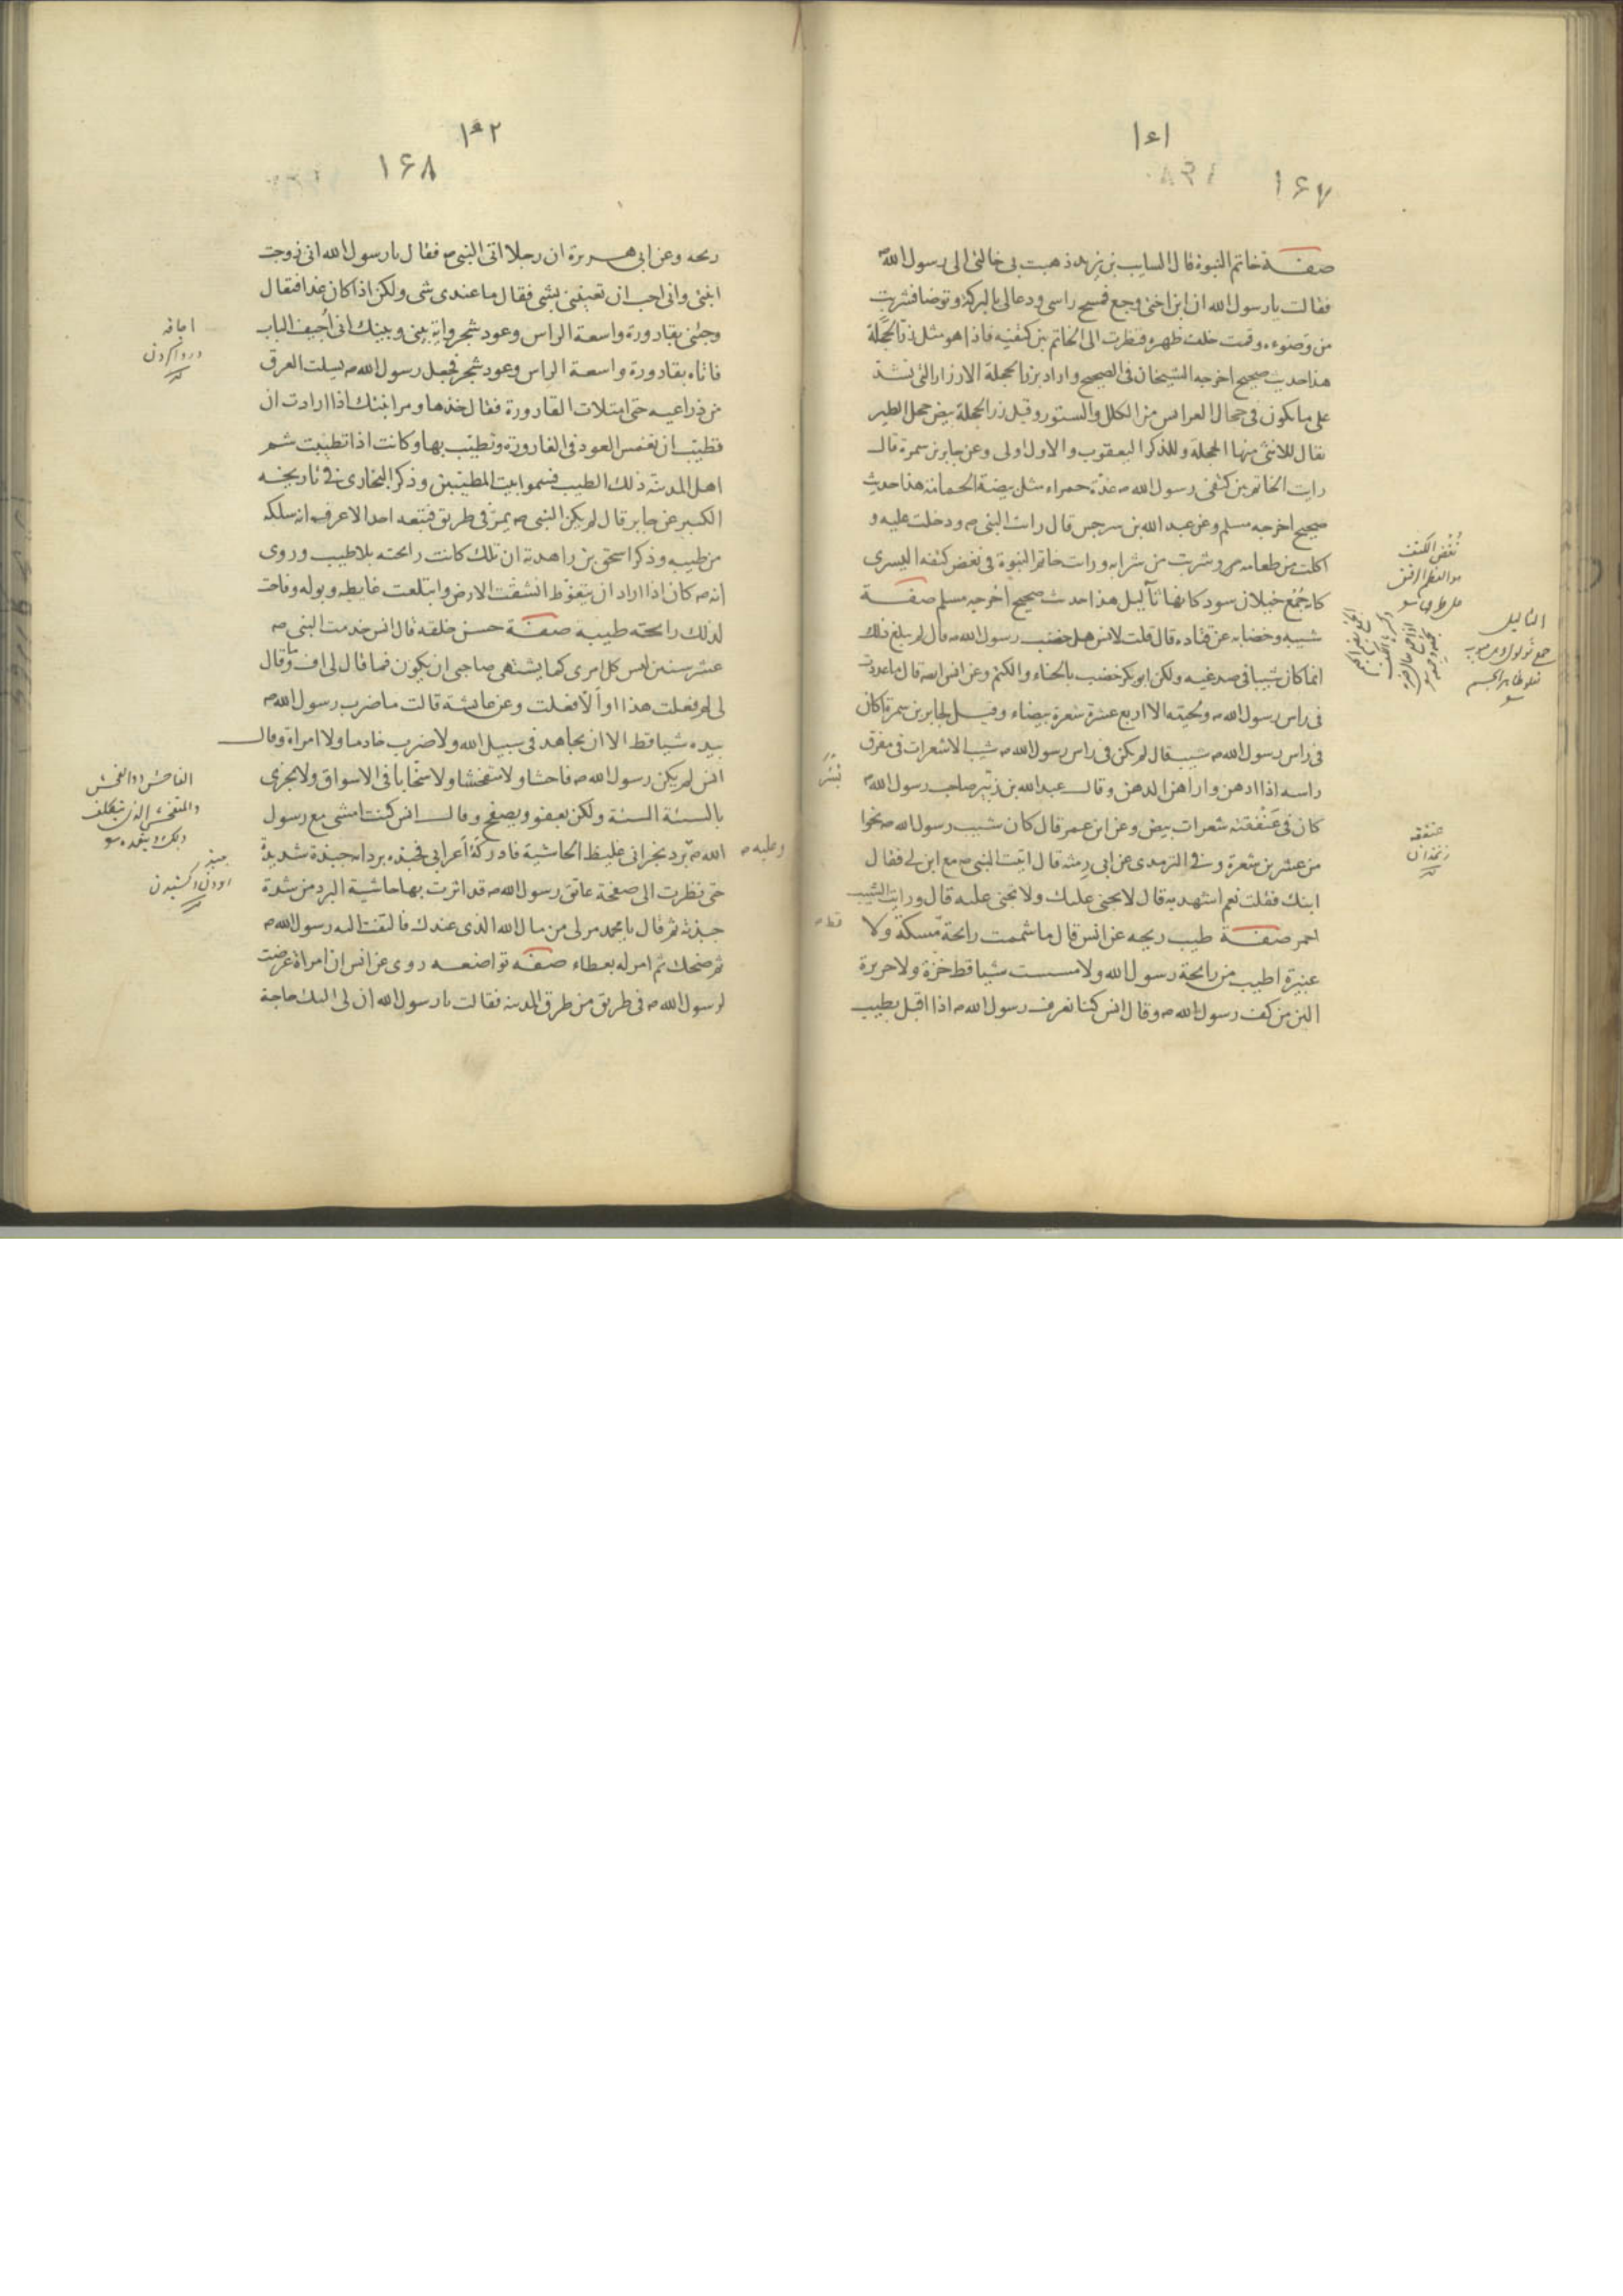 ١٤١
١٦٧
صفة خاتم النبوة قال السايب بن يزيد ذهبت بى خالتى الى رسول الله ص
فقالت يا رسول الله ان ابن اختى وجع فمسح راسى ودعا لى بالبركة وتوضا فشربت
من وضوءه وقمت خلف ظهره فنظرت الى الخاتم بين كتفيه فاذا هو مثل زر الحجلة
هذا حديث صحيح اخرجه الشيخان فى الصحيح واراد بزر الحجلة الازرار التى تشد
على ما يكون فى حجال العرايس من الكلل والستور وقيل زر الحجلة بيض حجل الطير
يقال للانثى منها الحجلة وللذكر اليعقوب والاول اولى وعن جابر بن سمرة قال
رايت الخاتم بين كتفى رسول الله ص غدة حمراء مثل بيضة الحمامة هذا حديث
صحيح اخرجه مسلم وعن عبد الله بن سرجس قال رايت النبى ص ودخلت عليه و
اكلت من طعامه وشربت من شرابه ورايت خاتم النبوة فى نغض كتفه اليسرى
كانه جُمْع خيلان سود كانها ثآليل هذا حديث صحيح اخرجه مسلم صفة
شيبه وخضابه عن قتاده قال قلت لانس هل خضب رسول الله ص قال لم يبلغ ذلك
انما كان شيبا فى صدغيه ولكن ابو بكر خضب بالحناء والكتم وعن انس انه قال ما عددت
فى راس رسول الله ص ولحيته الا اربع عشرة شعرة بيضاء وقيل لجابر بن سمرة اكان
فى راس رسول الله ص شيب قال لم يكن فى راس رسول الله ص شيب الا شعرات فى مفرق
راسه اذا ادهن واراهن الدهن وقال عبد الله بن بسر صاحب رسول الله ص
كان فى عنفقته شعرات بيض وعن ابن عمر قال كان شيب رسول الله ص نحوا
من عشرين شعرة وفى الترمذى عن ابى رمثة قال اتيت النبى ص مع ابن لى فقال
ابنك فقلت نعم اشهد به قال لا يجنى عليك ولا تجنى عليه قال ورايت الشيب
احمر صفة طيب ريحه عن انس قال ما شممت رايحة مسكة ولا
عنبرة اطيب من رايحة رسول الله ولا مسست شيا قط خزة ولا حريرة
الين من كف رسول الله ص وقال انس كنا نعرف رسول الله ص اذا اقبل بطيب
نُغْض الكتف
هو العظم الرقيق
على طرفها
الثاليل
جمع ثولول
عنفقه
زنخدان
قط ص
١٤٢
١٦٨
ريحه وعن ابى هريرة ان رجلا اتى النبى ص فقال يا رسول الله انى زوجت
ابنتى وانى احب ان تعيننى بشى فقال ما عندى شى ولكن اذا كان غدا فتعال
وجئنى بقارورة واسعة الراس وعود شجر واية بينى وبينك انى أُجيف الباب
فاتاه بقارورة واسعة الراس وعود شجر فجعل رسول الله ص يسلت العرق
من ذراعيه حتى امتلات القارورة فقال خذها ومر ابنتك اذا ارادت ان
تطيب ان تغمس العود فى القارورة وتطيب بها وكانت اذا تطيبت شم
اهل المدينة ذلك الطيب فسموا بيت المطيبين وذكر البخارى فى تاريخه
الكبير عن جابر قال لم يكن النبى ص يمر فى طريق فيتبعه احد الا عرف انه سلكه
من طيبه وذكر اسحق بن راهويه ان تلك كانت رايحته بلا طيب وروى
انه ص كان اذا اراد ان يتغوط انشقت الارض وابتلعت غايطه وبوله وفاحت
لذلك رايحته طيبة صفة حسن خلقه قال انس خدمت النبى ص
عشر سنين ليس كل امرى كما يشتهى صاحبى ان يكون فما قال لى اف وما قال
لى لم فعلت هذا او ألّا فعلت وعن عايشة قالت ما ضرب رسول الله ص
بيده شيا قط الا ان يجاهد فى سبيل الله ولا ضرب خادما ولا امراة وقال
انس لم يكن رسول الله ص فاحشا ولا متفحشا ولا سخّابا فى الاسواق ولا يجزى
بالسيئة السيئة ولكن يعفو ويصفح وقال انس كنت امشى مع رسول
الله ص برد نجرانى غليظ الحاشية فادركه أعرابى فجبذه برداه جبذة شديدة
حتى نظرت الى صفحة عاتق رسول الله ص قد اثرت بها حاشية البرد من شدة
جبذته ثم قال يا محمد مر لى من مال الله الذى عندك فالتفت اليه رسول الله ص
ثم ضحك ثم امر له بعطاء صفه تواضعه روى عن انس ان امراة عرضت
لرسول الله ص فى طريق من طرق المدينه فقالت يا رسول الله ان لى اليك حاجة
وعليه ص
اجافه
در واكردن
الفاحش ذو الفحش
والمتفحش الذى يتكلف
ذلك ويتعمده
جبذ